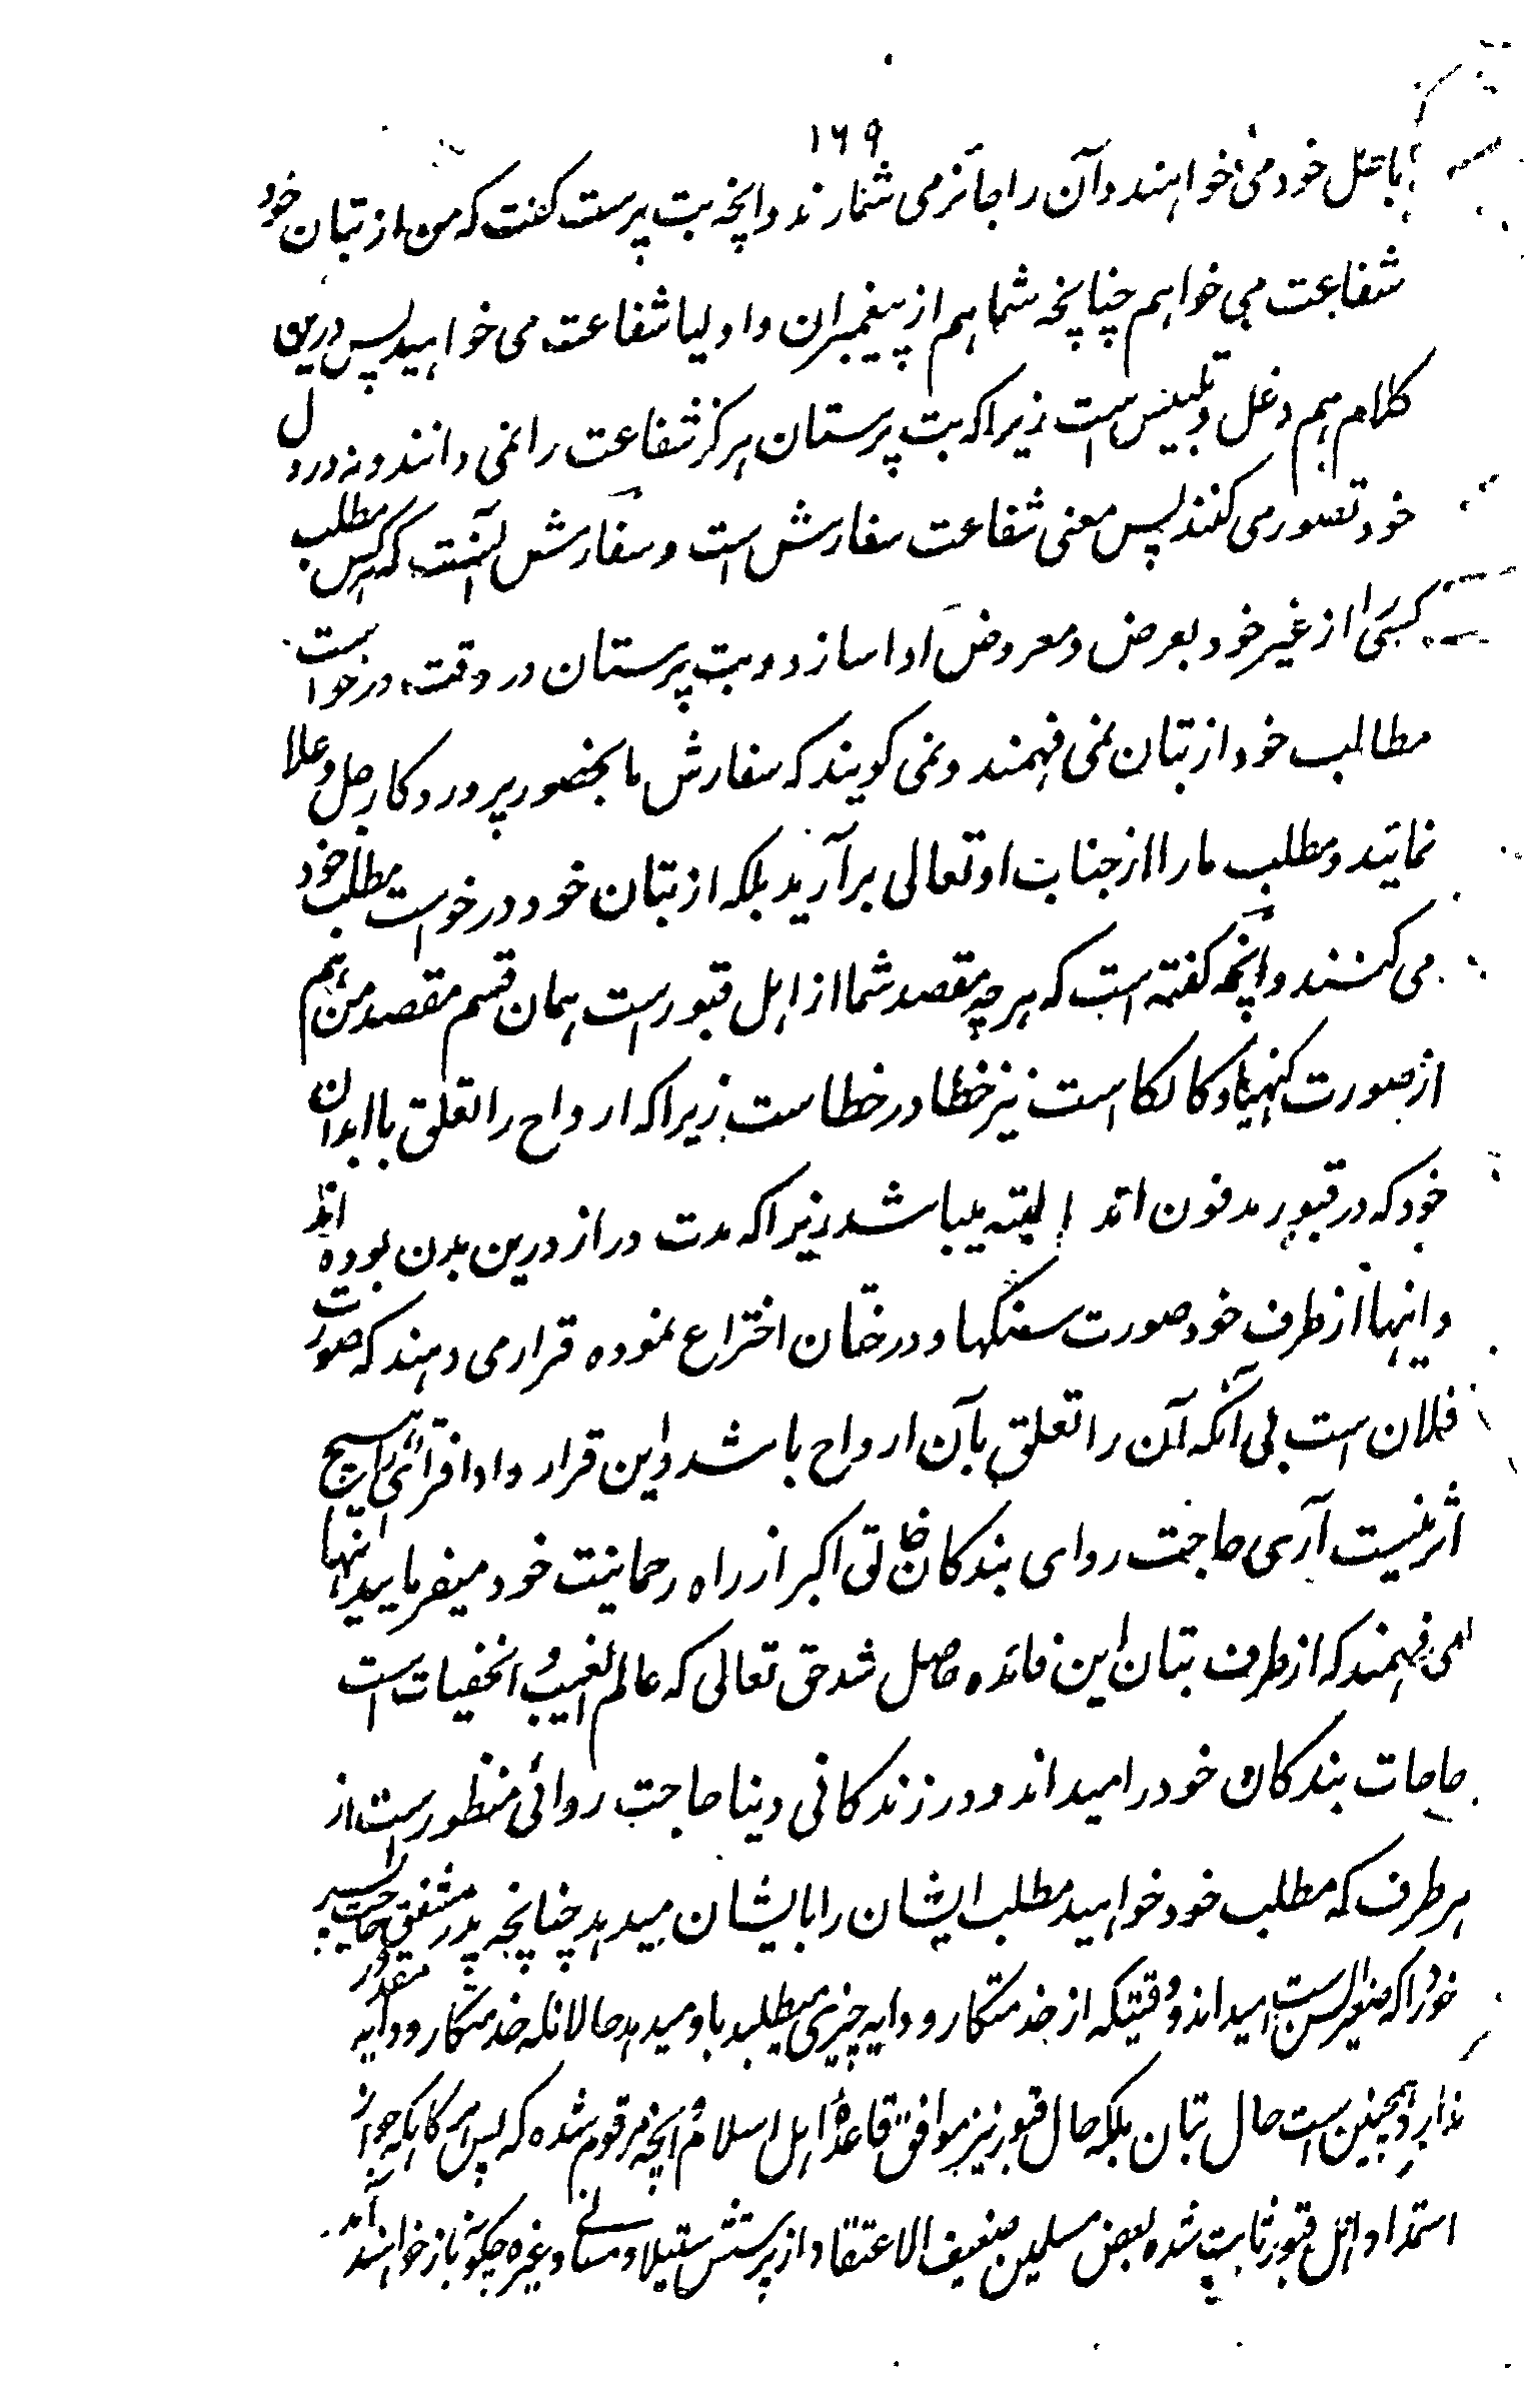 ۱۶۹
باطل خود می خواهند و آن را جائز می شمارند و انچه بت پرست گفت که من از بتان خود
شفاعت می خواهم چنانچه شما هم از پیغمبران و اولیا شفاعت می خواهید پس درین
کلام هم دغل و تلبیس است زیراکه بت پرستان هرگز شفاعت را نمی دانند و نه در دل
خود تصور می کنند پس معنی شفاعت سفارش است و سفارش آنست که کسی مطلب
کسی را از غیر خود بعرض و معروض ادا سازد و بت پرستان در وقت درخواست
مطالب خود از بتان نمی فهمند و نمی گویند که سفارش ما بحضور پروردگار جل و علا
نمائید و مطلب ما را از جناب او تعالی برآرید بلکه از بتان خود درخواست مطلب خود
می کنند و آنچه گفته است که هرچه مقصد شما از اهل قبور است همان قسم مقصد من هم
از صورت کنهیا و کالکا است نیز خطا در خطاست زیراکه ارواح را تعلق با ابدان
خود که در قبور مدفون اند البته میباشد زیراکه مدت دراز درین بدن بوده اند
و اینها از طرف خود صورت سنگها و درختان اختراع نموده قرار می دهند که صورت
فلان است بی آنکه آن را تعلق بآن ارواح باشد و این قرار داد افترائی را هیچ
اثر نیست آری حاجت روای بندگان خالق اکبر از راه رحمانیت خود میفرماید اینها
می فهمند که از طرف بتان این فائده حاصل شد حق تعالی که عالم الغیب و الخفیات است
حاجات بندگان خود را میداند و در زندگانی دنیا حاجت روائی منظور است از
هر طرف که مطلب خود خواهند مطلب ایشان را بایشان میدهد چنانچه پدر مشفق حاجت پسر
خود را که صغیر السن است میداند وقتیکه از خدمتگار و دایه چیزی میطلبد باو میدهد حالانکه خدمتگار و دایه مقدور
ندارد و همچنین است حال بتان بلکه حال قبور نیز موافق قاعده اهل اسلام و آنچه مرقوم شده که پس هرگاه که جواز
استمداد اهل قبور ثابت شده بعض مسلمین ضعیف الاعتقاد از پرستش سیتلا و مسانی وغیره چگونه باز خواهند آمد